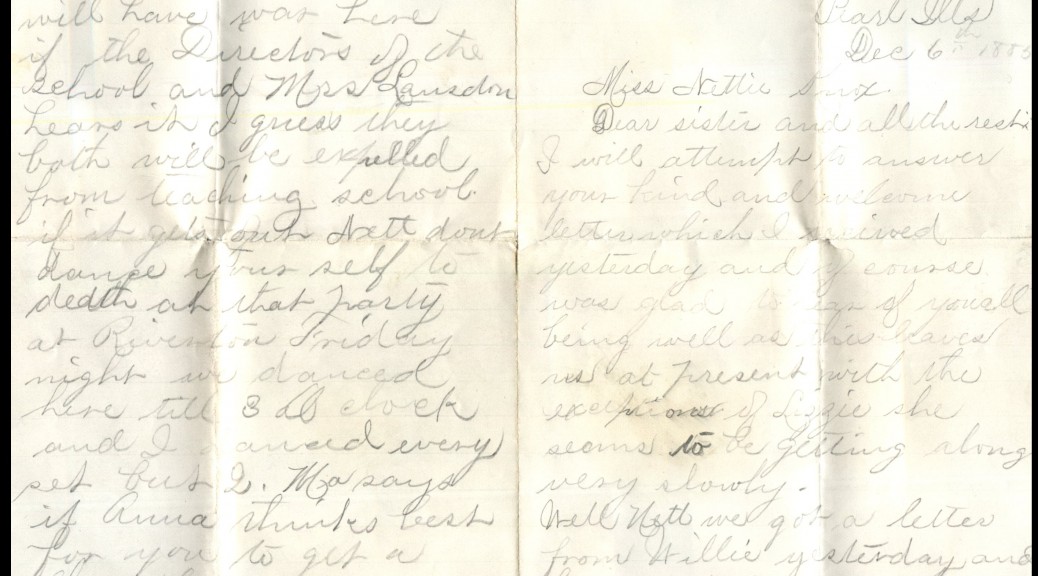 will have was here
if the Directors of the
school and Mrss Lansdon
hears it I guess they
both will be expelled
from teaching school
if it gets out Nett dont
dance your self to
dedth at that party
at Riverton Friday
night we danced
here till 3 O clock
and I danced every
set but 2. Ma says
if Anna thinks best
for you to get a
Pearl Ills
Dec 6th 188
Miss Nettie Knox.
Dear sister and all the rest
I will attempt to answer
your kind and welcome
letter which I reicived
yesterday and of course
was glad to of you all
being well as this leaves
us at present with the
exceptions of Lizzie she
seams to be getting along
very slowly.
Well Nett we got a letter
from Willie yesterday and